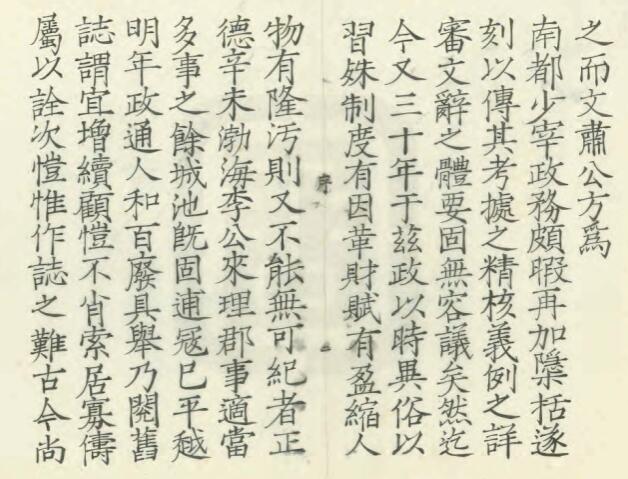 之而文肅公方爲
南都少宰政務頗暇再加檃括遂
刻以傳其考據之精核義例之詳
審文辭之體要固無容議矣然迄
今又三十年于茲政以時異俗以
習殊制度有因革財賦有盈縮人
序 二
物有隆汚則又不能無可紀者正
德辛未渤海李公來理郡事適當
多事之餘城池旣固逋寇已平越
明年政通人和百廢具舉乃閱舊
誌謂宜增續顧愷不肖索居寡儔
屬以詮次愷惟作誌之難古今尚